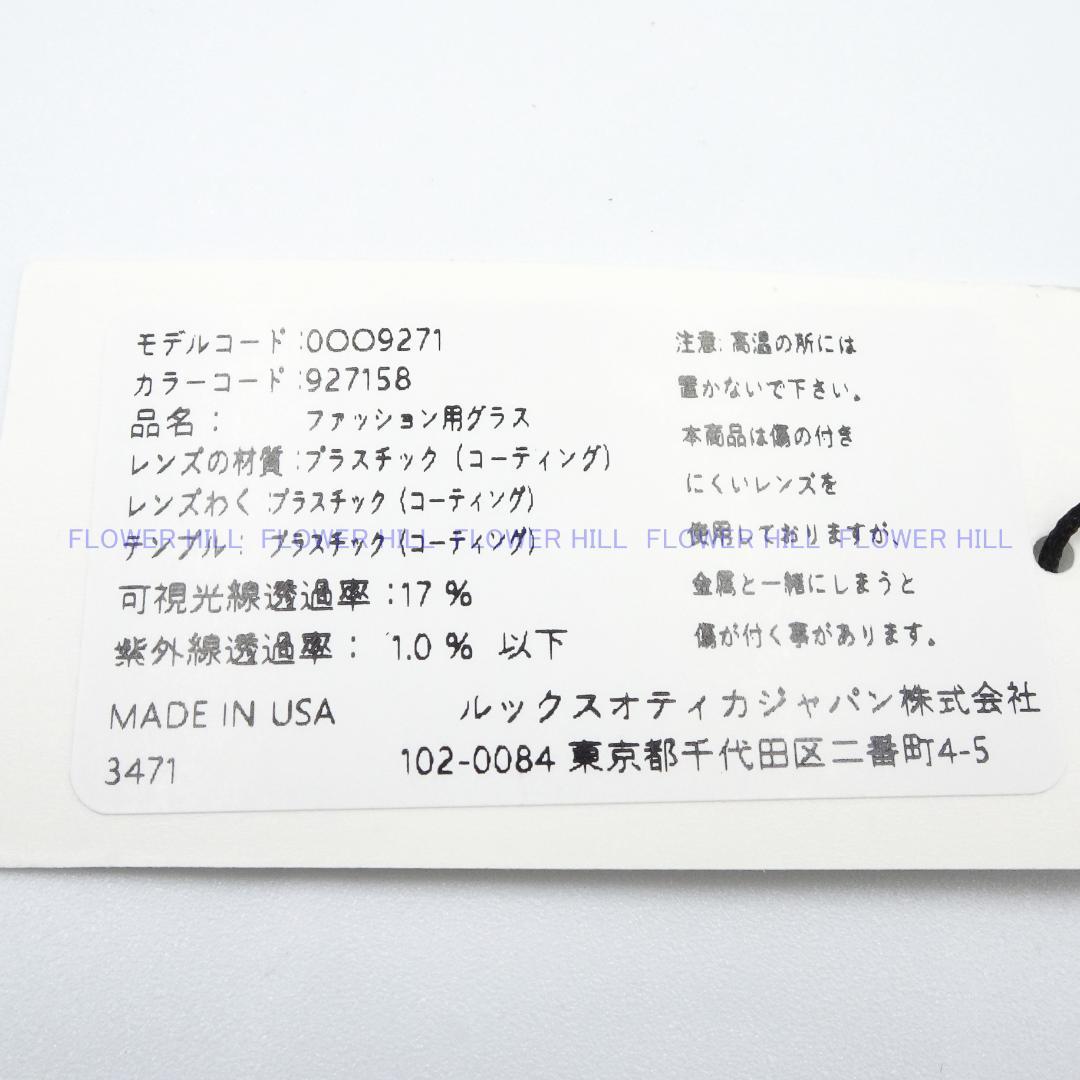 モデルコード:0OO9271
カラーコード:927158
品名: ファッション用グラス
レンズの材質:プラスチック(コーティング)
レンズわく:プラスチック(コーティング)
テンプル: プラスチック(コーティング)
可視光線透過率:17 %
紫外線透過率: 1.0 % 以下
MADE IN USA
3471
注意:高温の所には
置かないで下さい。
本商品は傷の付き
にくいレンズを
使用しておりますが、
金属と一緒にしまうと
傷が付く事があります。
ルックスオティカジャパン株式会社
102-0084 東京都千代田区二番町4-5
FLOWER HILL FLOWER HILL FLOWER HILL FLOWER HILL FLOWER HILL